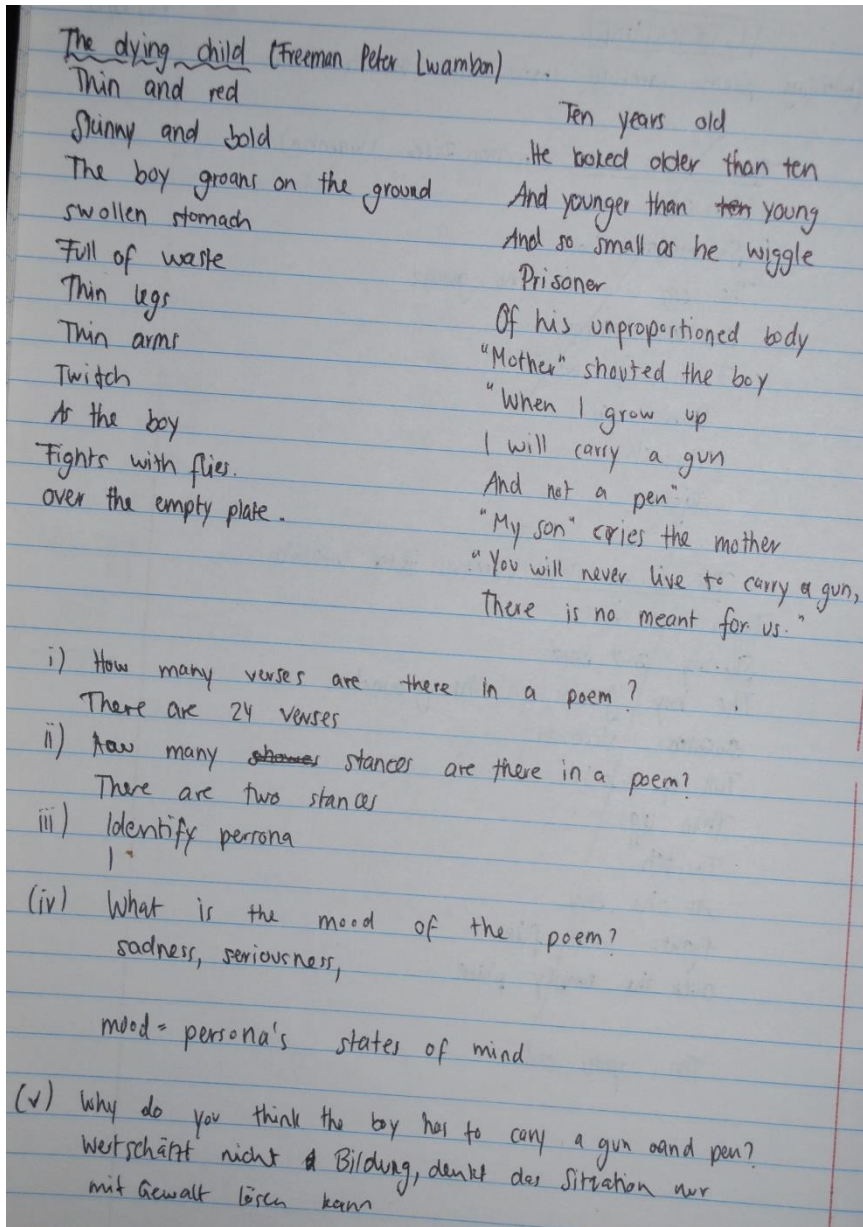 The dying child (Freeman Peter Lwamban)
Thin and red
Skinny and bold
The boy groans on the ground
swollen stomach
Full of waste
Thin legs
Thin arms
Twitch
As the boy
Fights with flies.
over the empty plate.
Ten years old
He looked older than ten
And younger than young
And so small as he wiggle
Prisoner
Of his unproportioned body
"Mother" shouted the boy
"When I grow up
I will carry a gun
And not a pen"
"My son" cries the mother
"You will never live to carry a gun,
There is no meant for us."
i) How many verses are there in a poem?
There are 24 verses
ii) how many stances are there in a poem?
There are two stances
iii) Identify persona
I
(iv) What is the mood of the poem?
sadness, seriousness,
mood = persona's states of mind
(v) Why do you think the boy has to cary a gun oand pen?
Wertschätzt nicht Bildung, denkt das Sitzation nur
mit Gewalt lösen kann